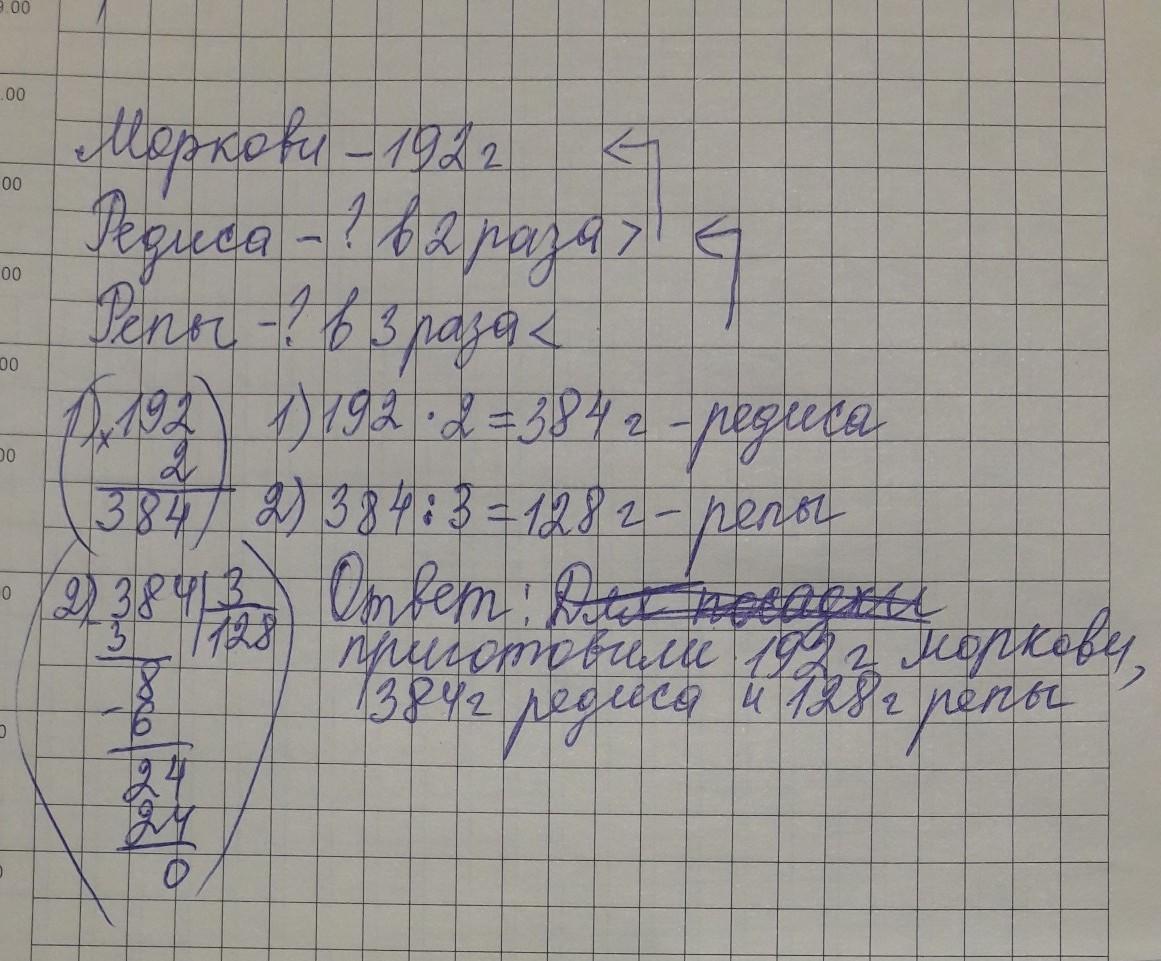 9.00
.00
00
00
00
00
0
0
0
Моркови – 192 г
Редиса – ? в 2 раза >
Репы – ? в 3 раза <
1) × 192
2
384
1) 192 · 2 = 384 г – редиса
2) 384 : 3 = 128 г – репы
2) 384 | 3
3 | 128
8
- 6
24
24
0
Ответ: Для посадки
приготовили 192 г моркови,
384 г редиса и 128 г репы